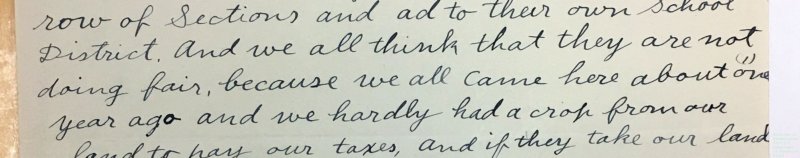 row of Sections and ad to their own School
District. And we all think that they are not
doing fair, because we all came here about one (1)
year ago and we hardly had a crop from our
land to pay our taxes, and if they take our land